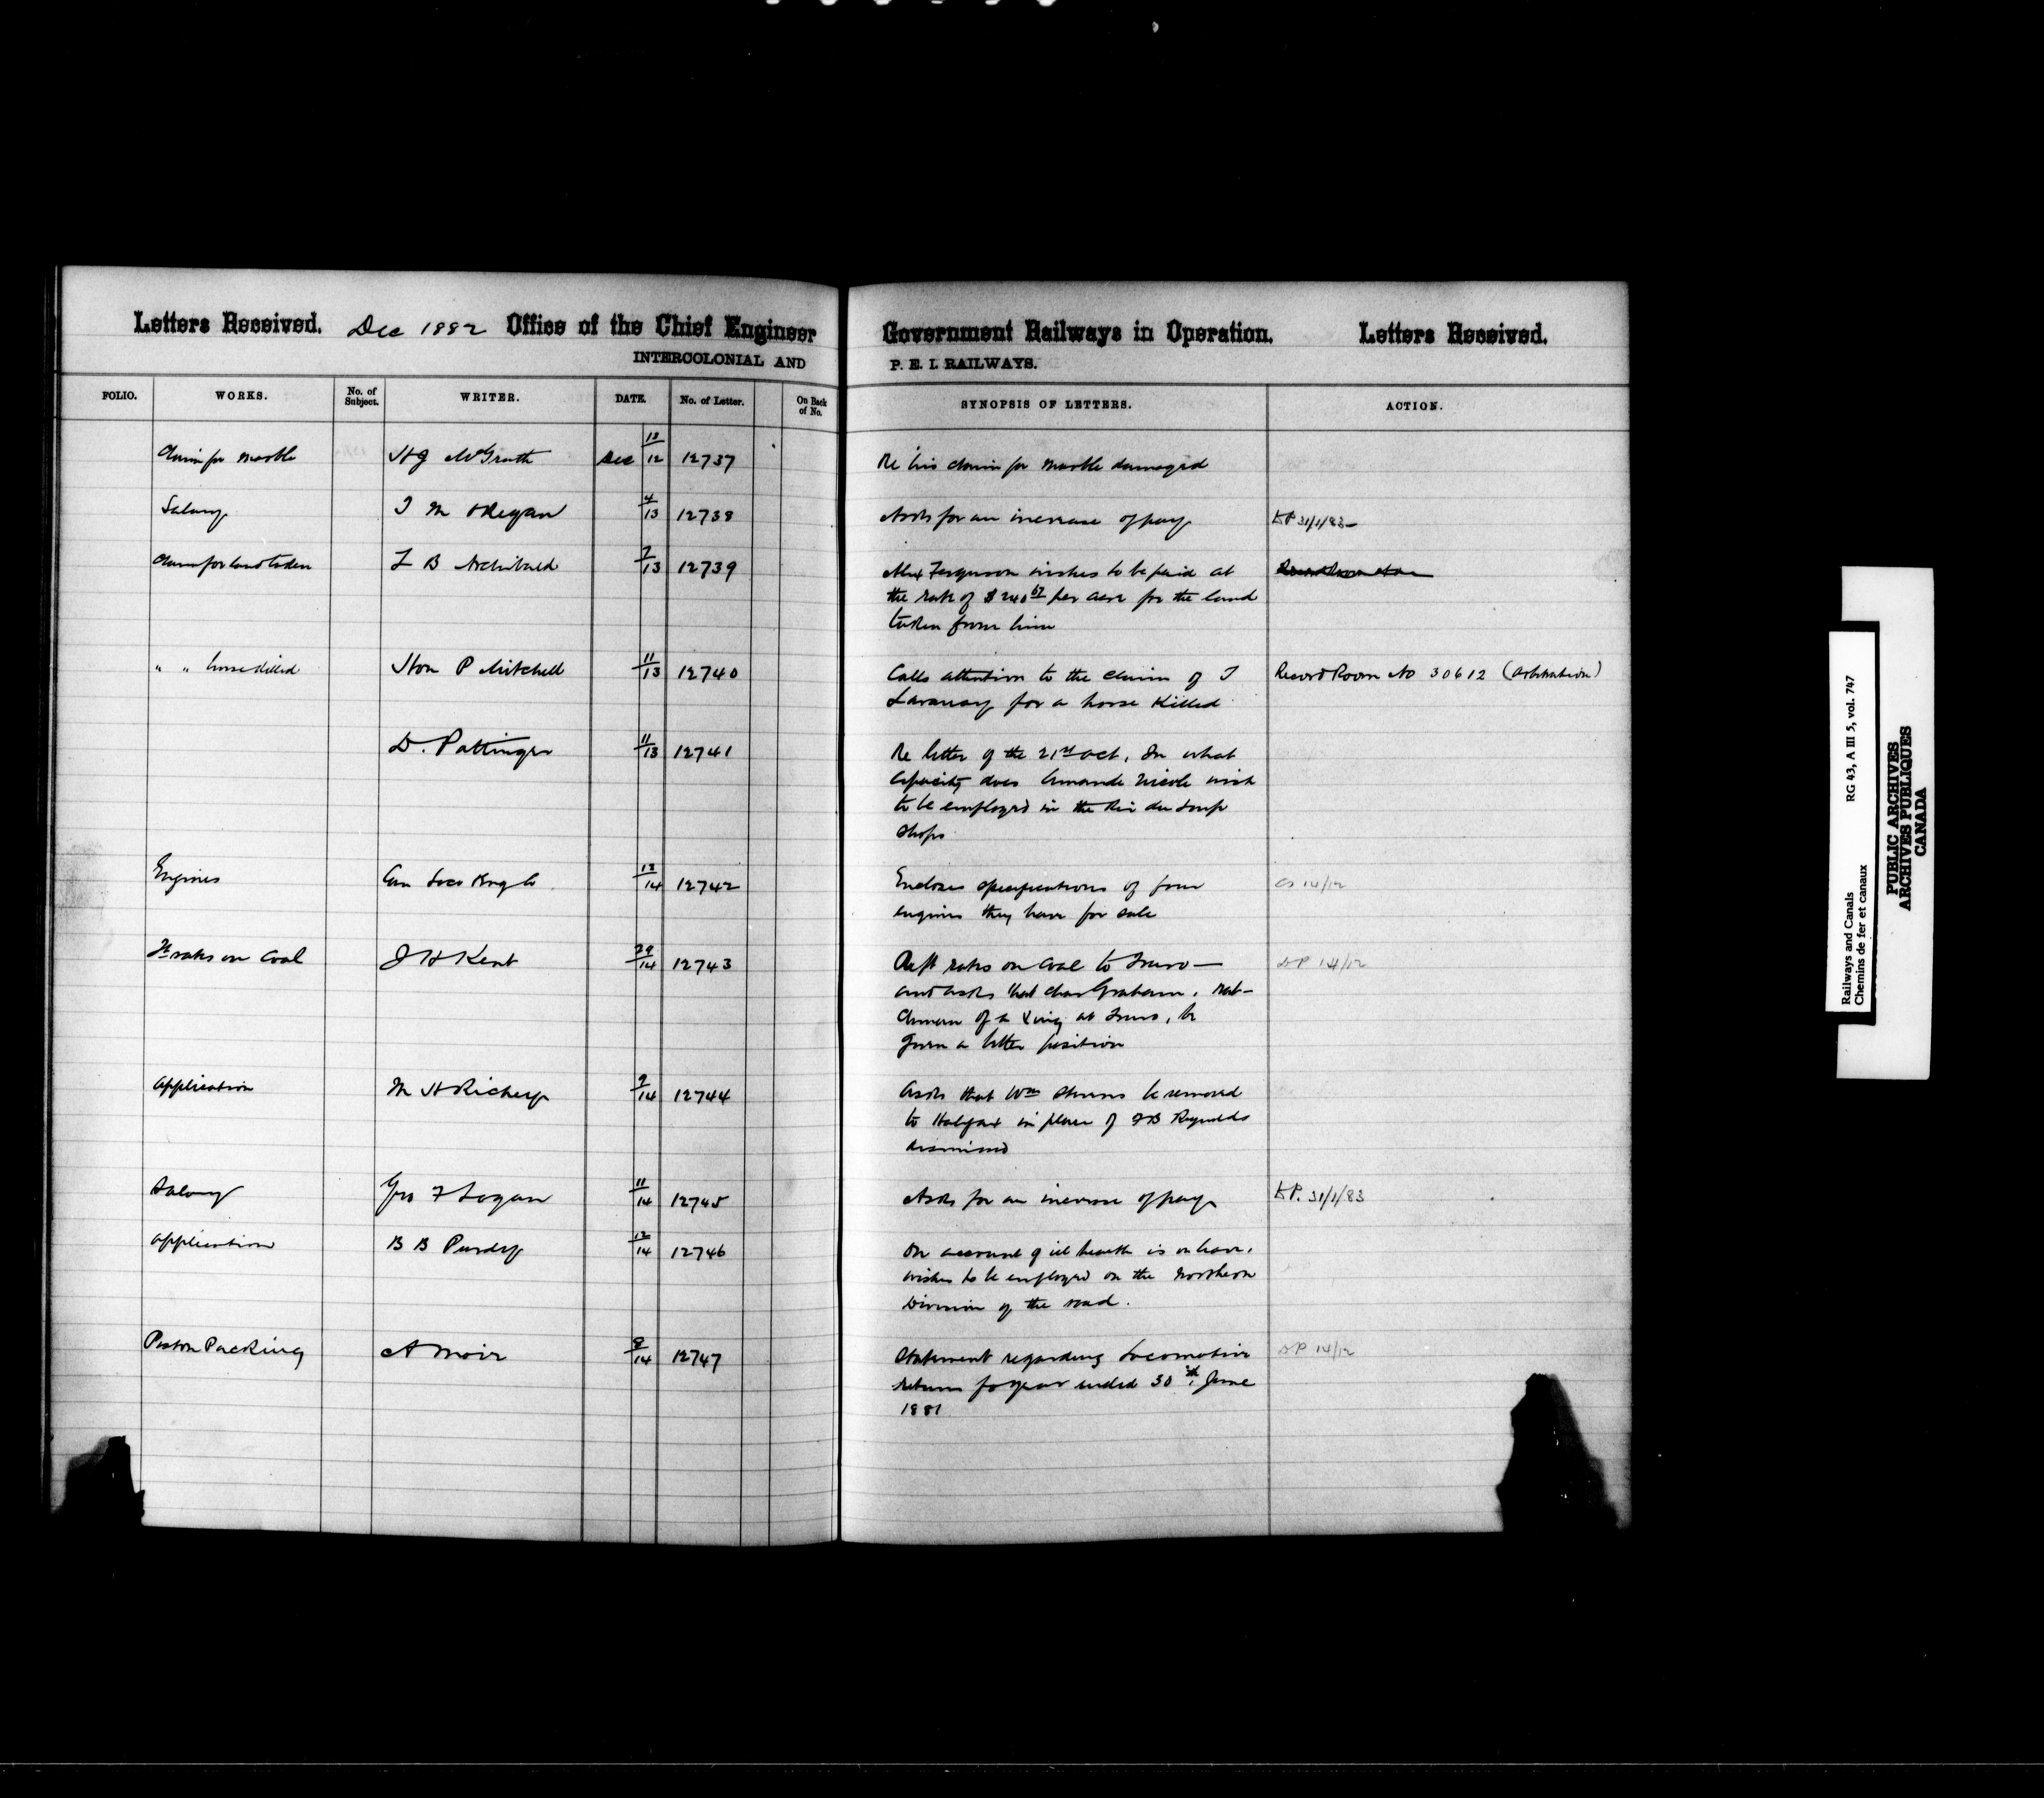 Letters Received. Dec 1882 Office of the Chief Engineer
INTERCOLONIAL AND
Government Railways in Operation. Letters Received.
P. E. I. RAILWAYS.
FOLIO. WORKS. No. of Subject. WRITER. DATE. No. of Letter. On Back of No.
SYNOPSIS OF LETTERS. ACTION.
Claim for Marble H J McGrath Dec 12/12 12737 Re his claim for Marble damaged
Salary J M O'Regan 4/13 12738 Asks for an increase of pay DP 31/1/83
Claim for land taken L B Archibald 7/13 12739 Alex Ferguson wishes to be paid at
the rate of $240 per acre for the land
taken from him
" " horse killed Hon P Mitchell 11/13 12740 Calls attention to the claim of J Record Room No 30612 (Arbitration)
for a horse killed
D. Pottinger 11/13 12741 Re letter of the 21st Oct. In what
capacity does Nicole wish
to be employed in the Riv du Loup
shops
Engines Can Loco Eng Co 12/14 12742 Encloses specifications of four CS 14/12
engines they have for sale
Ft rates on Coal J H Kent 29/14 12743 Re ft rates on Coal to Truro — DP 14/12
and asks that Chas Graham,
of a at Truro, be
given a better position
Application M H Richey 9/14 12744 Asks that Wm be removed
to Halifax in place of J B Reynolds
dismissed
Salary Geo F Logan 11/14 12745 Asks for an increase of pay DP. 31/1/83
Application B B Purdy 12/14 12746 On account of ill health is on leave,
wishes to be employed on the Northern
Division of the road.
Piston Packing A Moir 9/14 12747 Statement regarding Locomotive DP 14/12
returns for year ended 30th June
1881
Railways and Canals RG 43, A III 5, vol. 747
Chemins de fer et canaux
PUBLIC ARCHIVES
ARCHIVES PUBLIQUES
CANADA